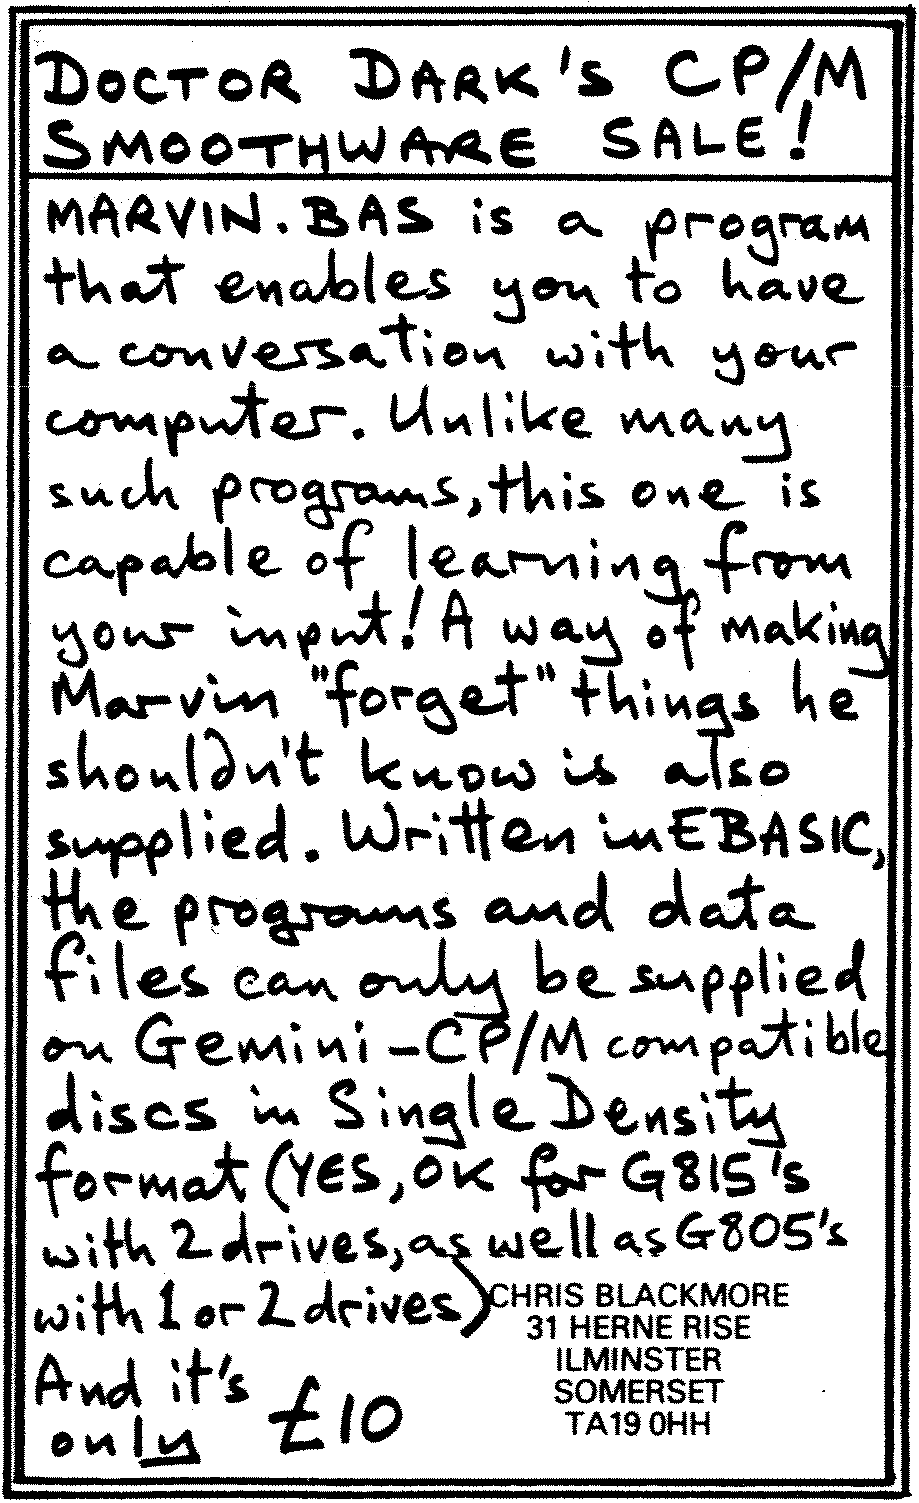 DOCTOR DARK'S CP/M
SMOOTHWARE SALE!
MARVIN.BAS is a program
that enables you to have
a conversation with your
computer. Unlike many
such programs, this one is
capable of learning from
your input! A way of making
Marvin "forget" things he
shouldn't know is also
supplied. Written in EBASIC,
the programs and data
files can only be supplied
on Gemini-CP/M compatible
discs in Single Density
format (YES, OK for G815's
with 2 drives, as well as G805's
with 1 or 2 drives)
And it's
only £10
CHRIS BLACKMORE
31 HERNE RISE
ILMINSTER
SOMERSET
TA19 0HH